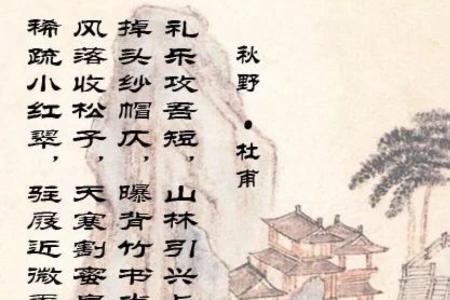 秋野·杜甫
礼乐攻吾短，山林引兴
掉头纱帽仄，曝背竹书
风落收松子，天寒割蜜
稀疏小红翠，驻屐近微